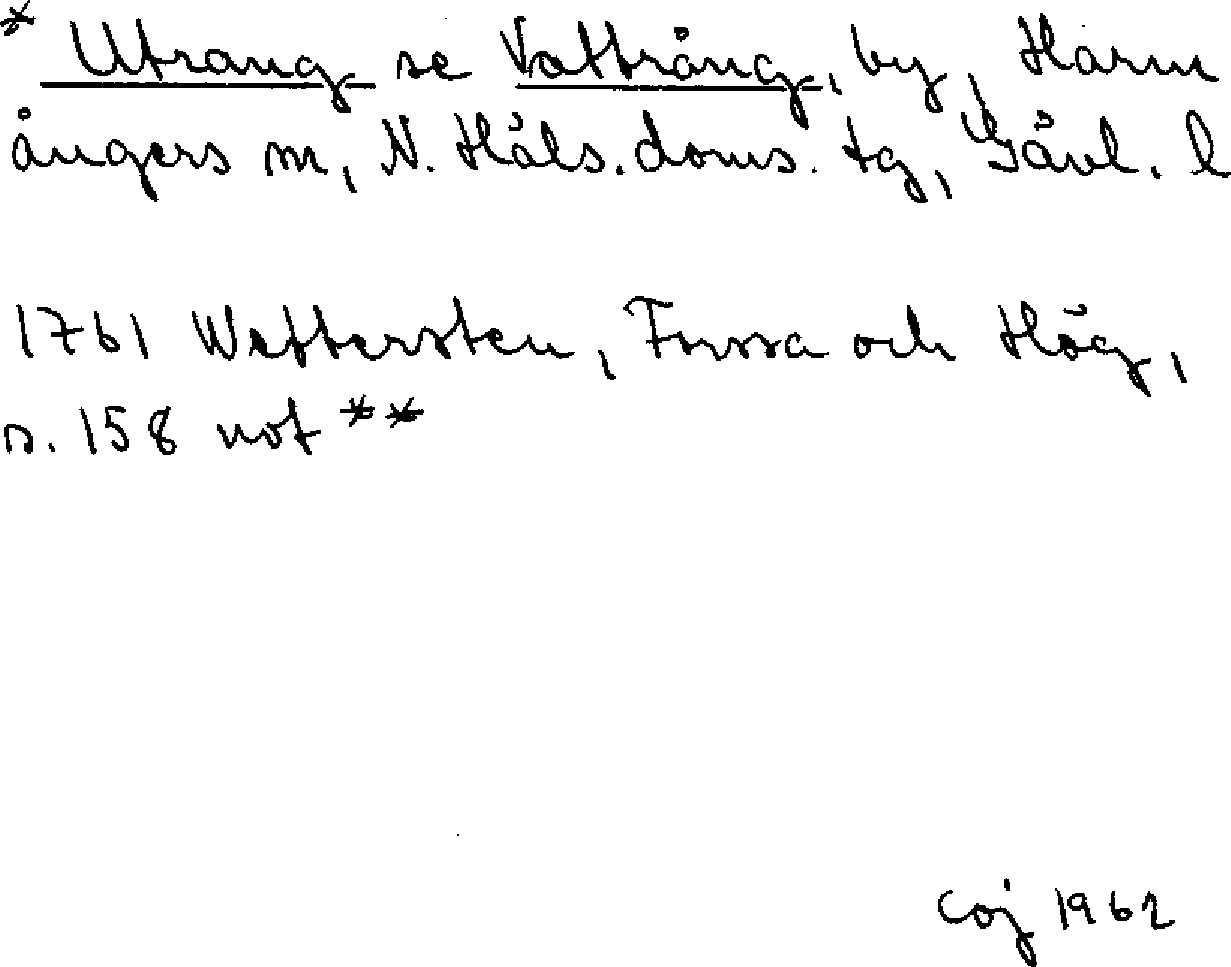 * Utrang se Vattrång, by, Harm
ångers sn, N. Häls. doms. tg, Gävl. l
1761 Wettersten, Forssa och Hög,
s. 158 not **
Coj 1962